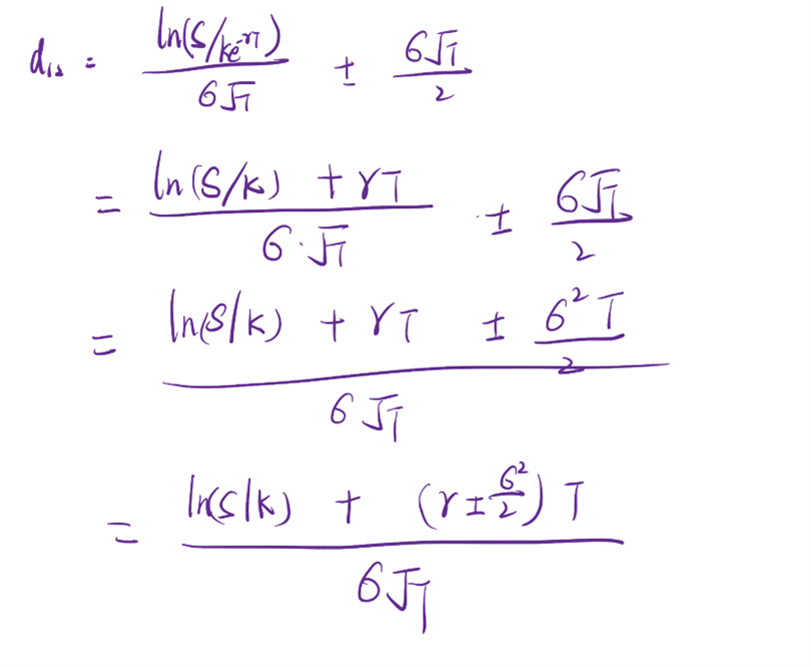 d₁₂ = ln(S/Ke^-rT) / σ√T ± σ√T / 2
= ln(S/K) + rT / σ·√T ± σ√T / 2
= ln(S/K) + rT ± σ²T / 2 / σ√T
= ln(S/K) + (r ± σ²/2) T / σ√T